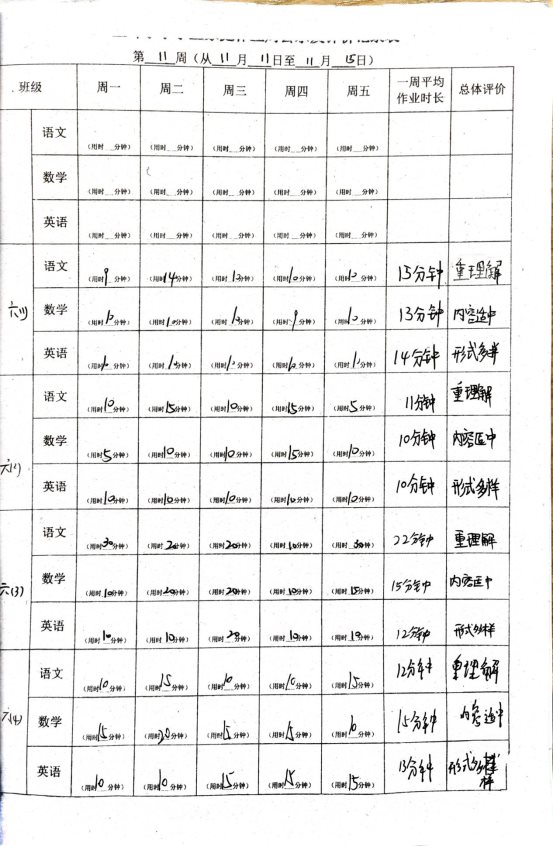 第 11 周（从 11 月 11 日至 11 月 15 日）
班级 周一 周二 周三 周四 周五 一周平均作业时长 总体评价
语文 （用时__分钟） （用时__分钟） （用时__分钟） （用时__分钟） （用时__分钟）
数学 （用时__分钟） （用时__分钟） （用时__分钟） （用时__分钟） （用时__分钟）
英语 （用时__分钟） （用时__分钟） （用时__分钟） （用时__分钟） （用时__分钟）
六(1) 语文 （用时9分钟） （用时14分钟） （用时13分钟） （用时10分钟） （用时10分钟） 15分钟 重理解
数学 （用时10分钟） （用时10分钟） （用时10分钟） （用时9分钟） （用时10分钟） 13分钟 内容适中
英语 （用时10分钟） （用时10分钟） （用时10分钟） （用时10分钟） （用时10分钟） 14分钟 形式多样
六(2) 语文 （用时10分钟） （用时15分钟） （用时10分钟） （用时15分钟） （用时5分钟） 11分钟 重理解
数学 （用时5分钟） （用时10分钟） （用时10分钟） （用时15分钟） （用时10分钟） 10分钟 内容适中
英语 （用时10分钟） （用时10分钟） （用时10分钟） （用时10分钟） （用时10分钟） 10分钟 形式多样
六(3) 语文 （用时30分钟） （用时20分钟） （用时20分钟） （用时10分钟） （用时30分钟） 22分钟 重理解
数学 （用时10分钟） （用时20分钟） （用时20分钟） （用时10分钟） （用时15分钟） 15分钟 内容适中
英语 （用时10分钟） （用时10分钟） （用时20分钟） （用时10分钟） （用时10分钟） 12分钟 形式多样
六(4) 语文 （用时10分钟） （用时15分钟） （用时10分钟） （用时10分钟） （用时15分钟） 12分钟 重理解
数学 （用时15分钟） （用时20分钟） （用时15分钟） （用时15分钟） （用时10分钟） 15分钟 内容适中
英语 （用时10分钟） （用时10分钟） （用时15分钟） （用时15分钟） （用时15分钟） 13分钟 形式多样
样